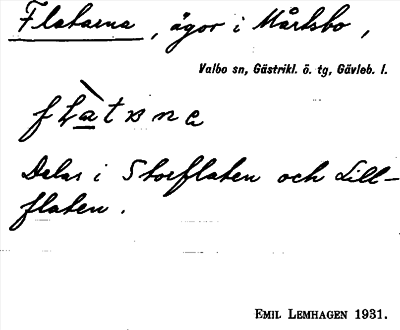 Flatarna, ägor i Mårtsbo,
Valbo sn, Gästrikl. ö. tg, Gävleb. l.
Delas i Storflaten och Lill-
flaten.
EMIL LEMHAGEN 1931.